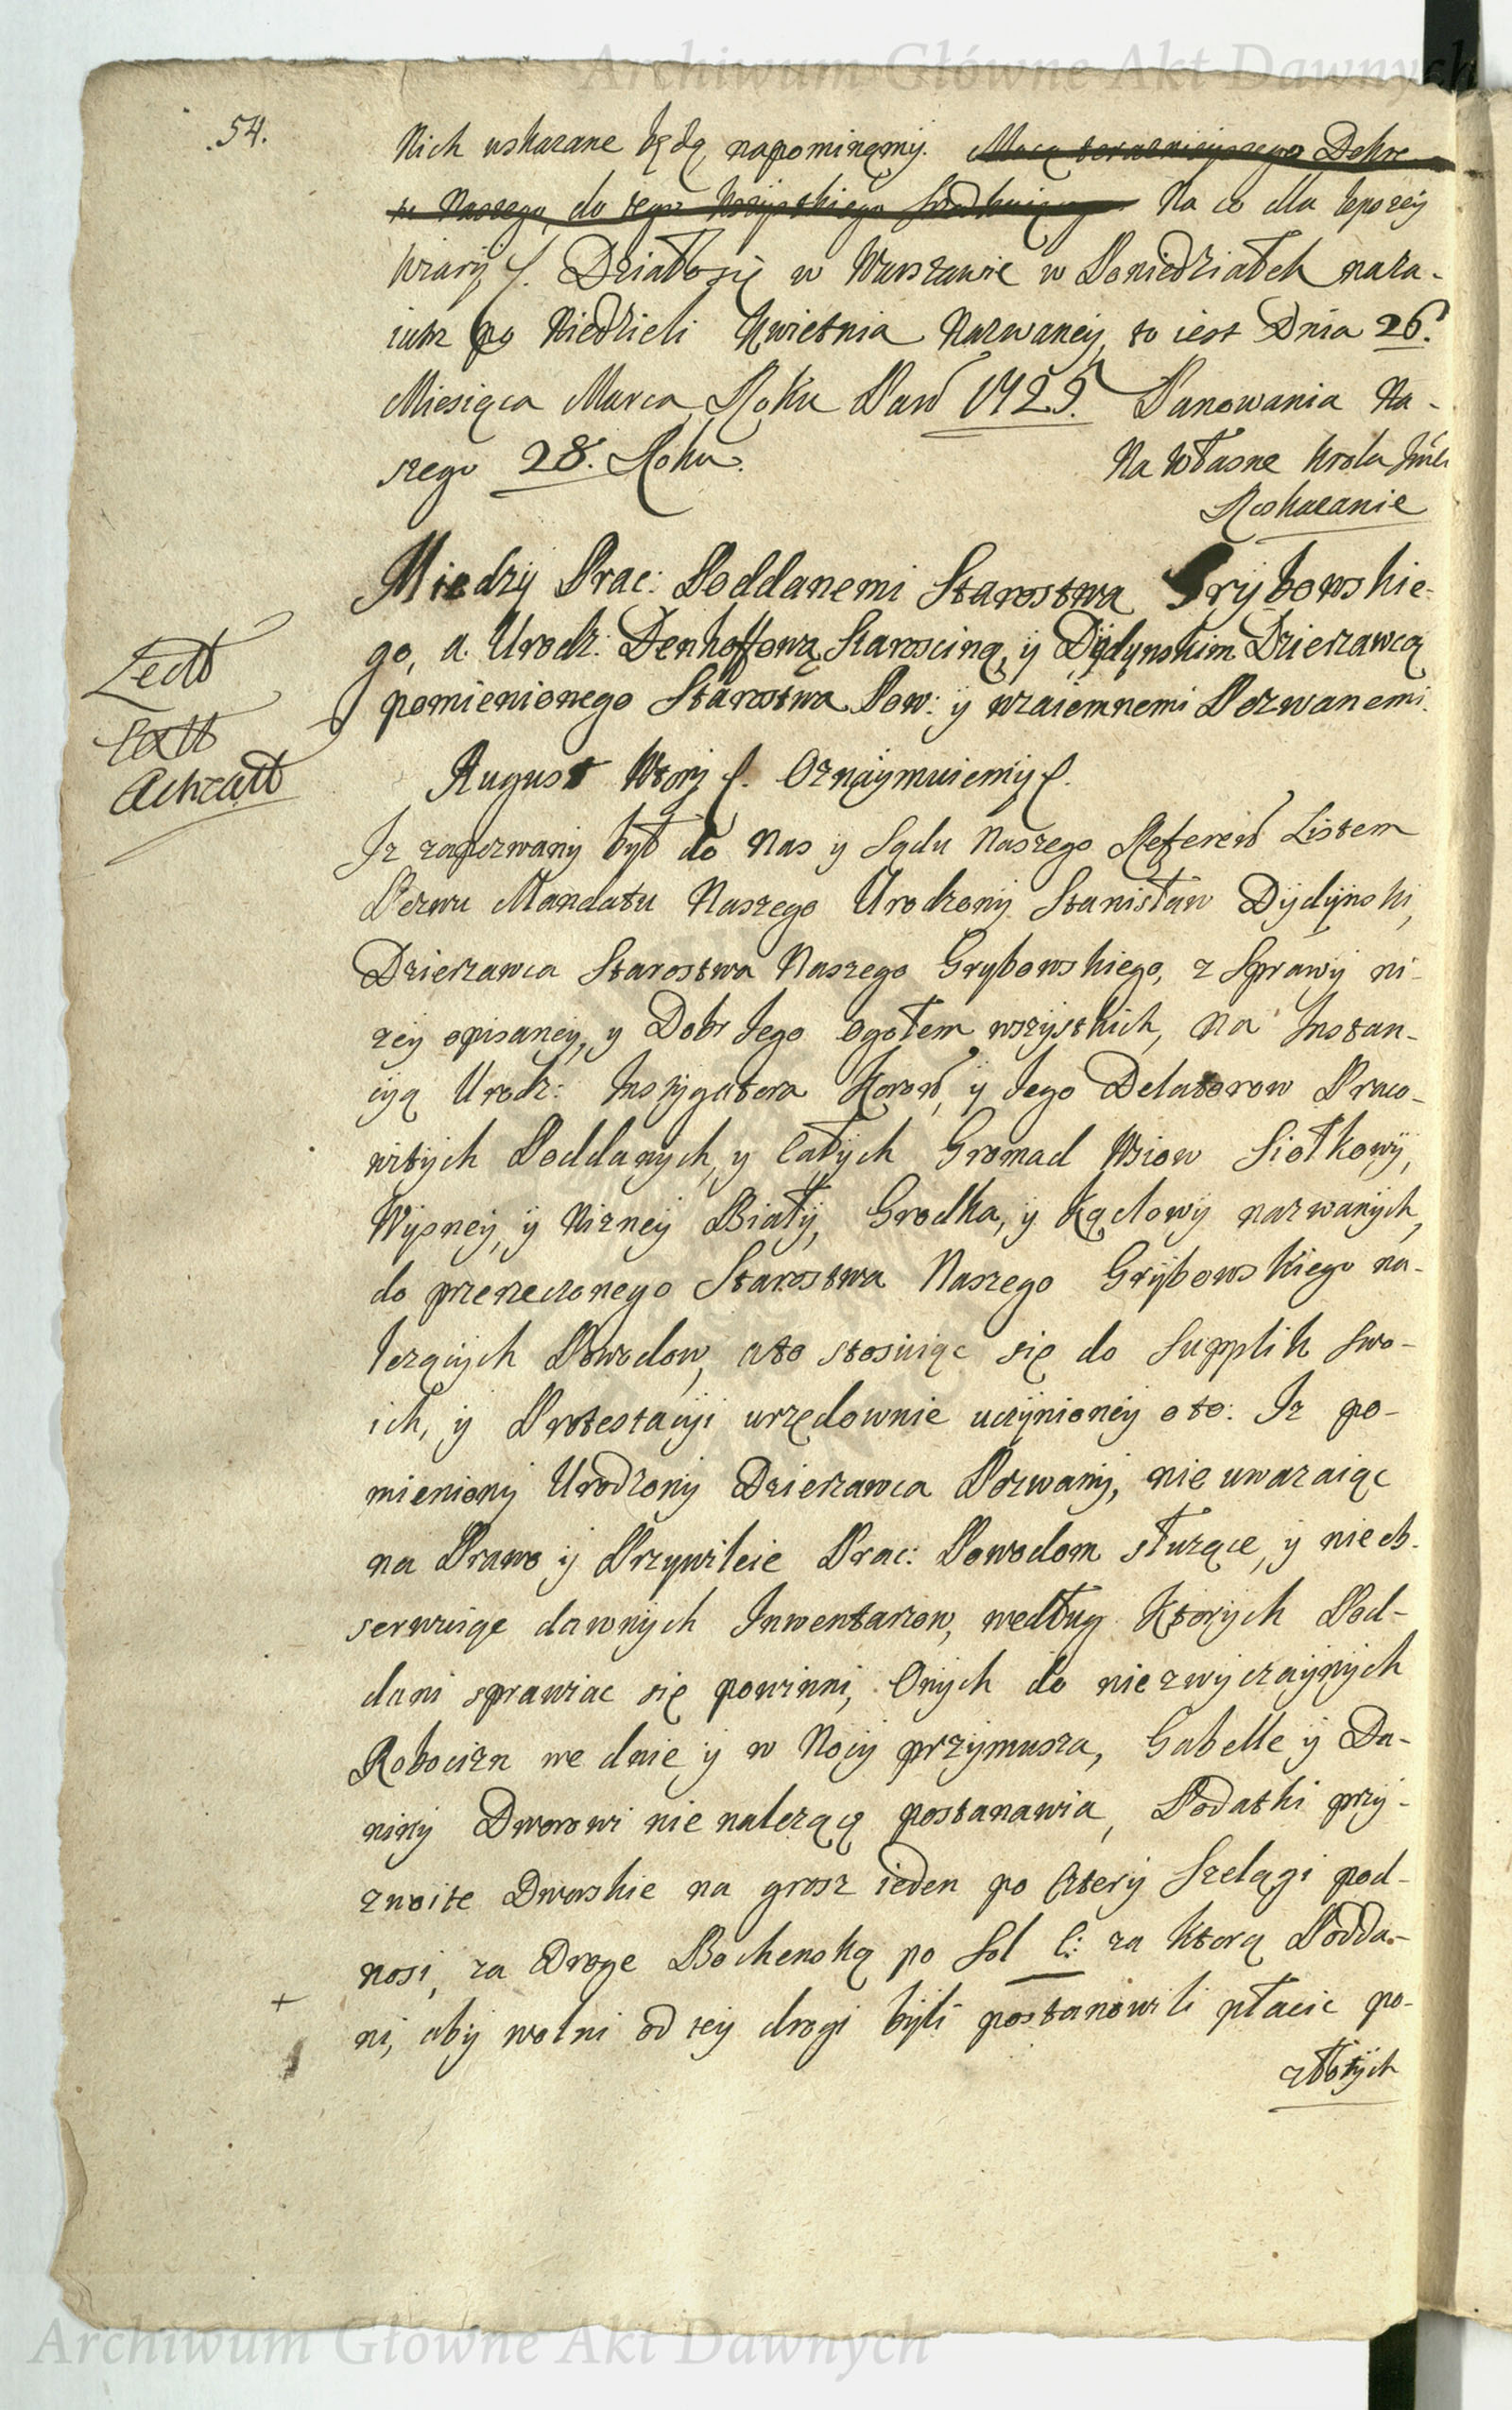 Archiwum Główne Akt Dawnych
.54.
Nich uskazane będą napominamy. Mocą teraznieyszego Dekre
tu Naszego, do tego Na co dla lepszey
wiary f. Działo się w Warszawie w Poniedziałek naza-
iutrz po Niedzieli Kwietnia Nazwaney, to iest Dnia 26.
Miesiąca Marca, Roku Pań 1725. Panowania Na-
szego 28. Roku.
Na własne Krola Jmci
Roskazanie
Między Prac: Poddanemi Starostwa Grybowskie-
go, a Urodz: Denhoffową Starosciną, y Dydynskim Dzierzawcą
pomienionego Starostwa Pow: y wzaiemnemi Pozwanemi.
Lect
Extt
August Wtory f. Oznaymuiemy f.
Iz zapozwany był do Nas y Sądu Naszego Referen Listem
Pozwu Mandatu Naszego Urodzony Stanisław Dydynski,
Dzierzawca Starostwa Naszego Grybowskiego, z Sprawy ni-
zey opisaney, y Dobr Jego ogołem wszystkich, na Instan-
cyą Urodz: Instygatora Koron, y Jego Delatorow Praco-
witych Poddanych, y Całych Gromad Wsiow Siołkowy,
Wyszney, y Nizney Biały, Grodka, y Kąclowy nazwanych,
do przerzeczonego Starostwa Naszego Grybowskiego na-
lezących Powodow, ato stosuiąc się do Supplik swo-
ich, y Protestacyi urzędownie uczynioney oto: Iz po-
mieniony Urodzony Dzierzawca Pozwany, nie uwazaiąc
na Prawo y Przywileie Prac: Powodom słuzące, y nie ob-
serwuiąc dawnych Inwentarzow, według Ktorych Pod-
dani sprawiac się powinni, Onych do niezwyczaynych
Robocizn we dnie y w Nocy przymusza, Gabelle y Da-
niny Dworowi nie nalezącą postanawia, Podatki przy-
zwoite Dworskie na grosz ieden po Cztery Szelągi pod-
nosi, za Droge Bochenską po Sol C: za Ktorą Podda-
ni, aby wolni od tey drogi byli postanowili płacic po-
złotych
Archiwum Główne Akt Dawnych